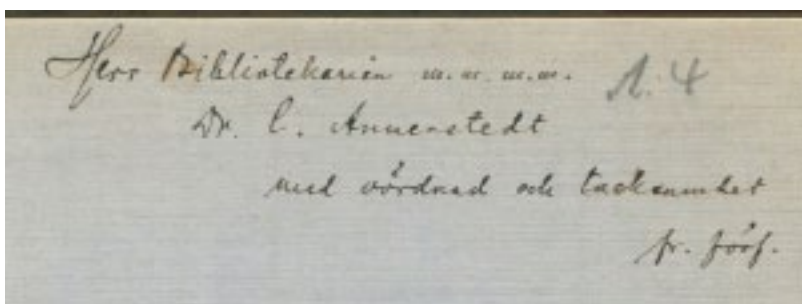 Herr Bibliotekarien m. m. m. m. 1. 4
Dr. C. Annerstedt
med vördnad och tacksamhet
fr. förf.